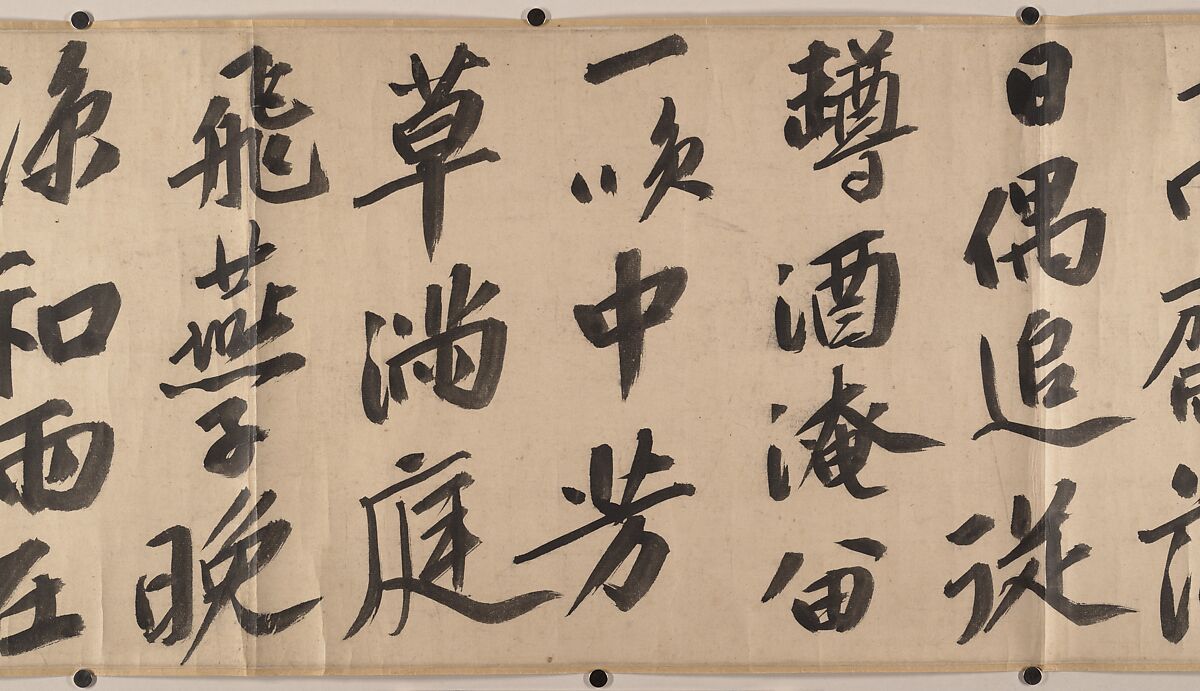 日偶追從
罇酒淹留
一 中芳
草滿庭
飛燕子晚
涼和雨在